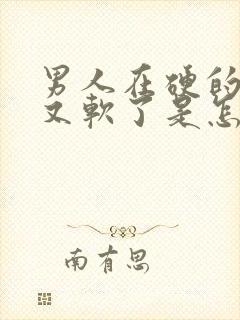 男人在硬的
又軟了是怎
南有思